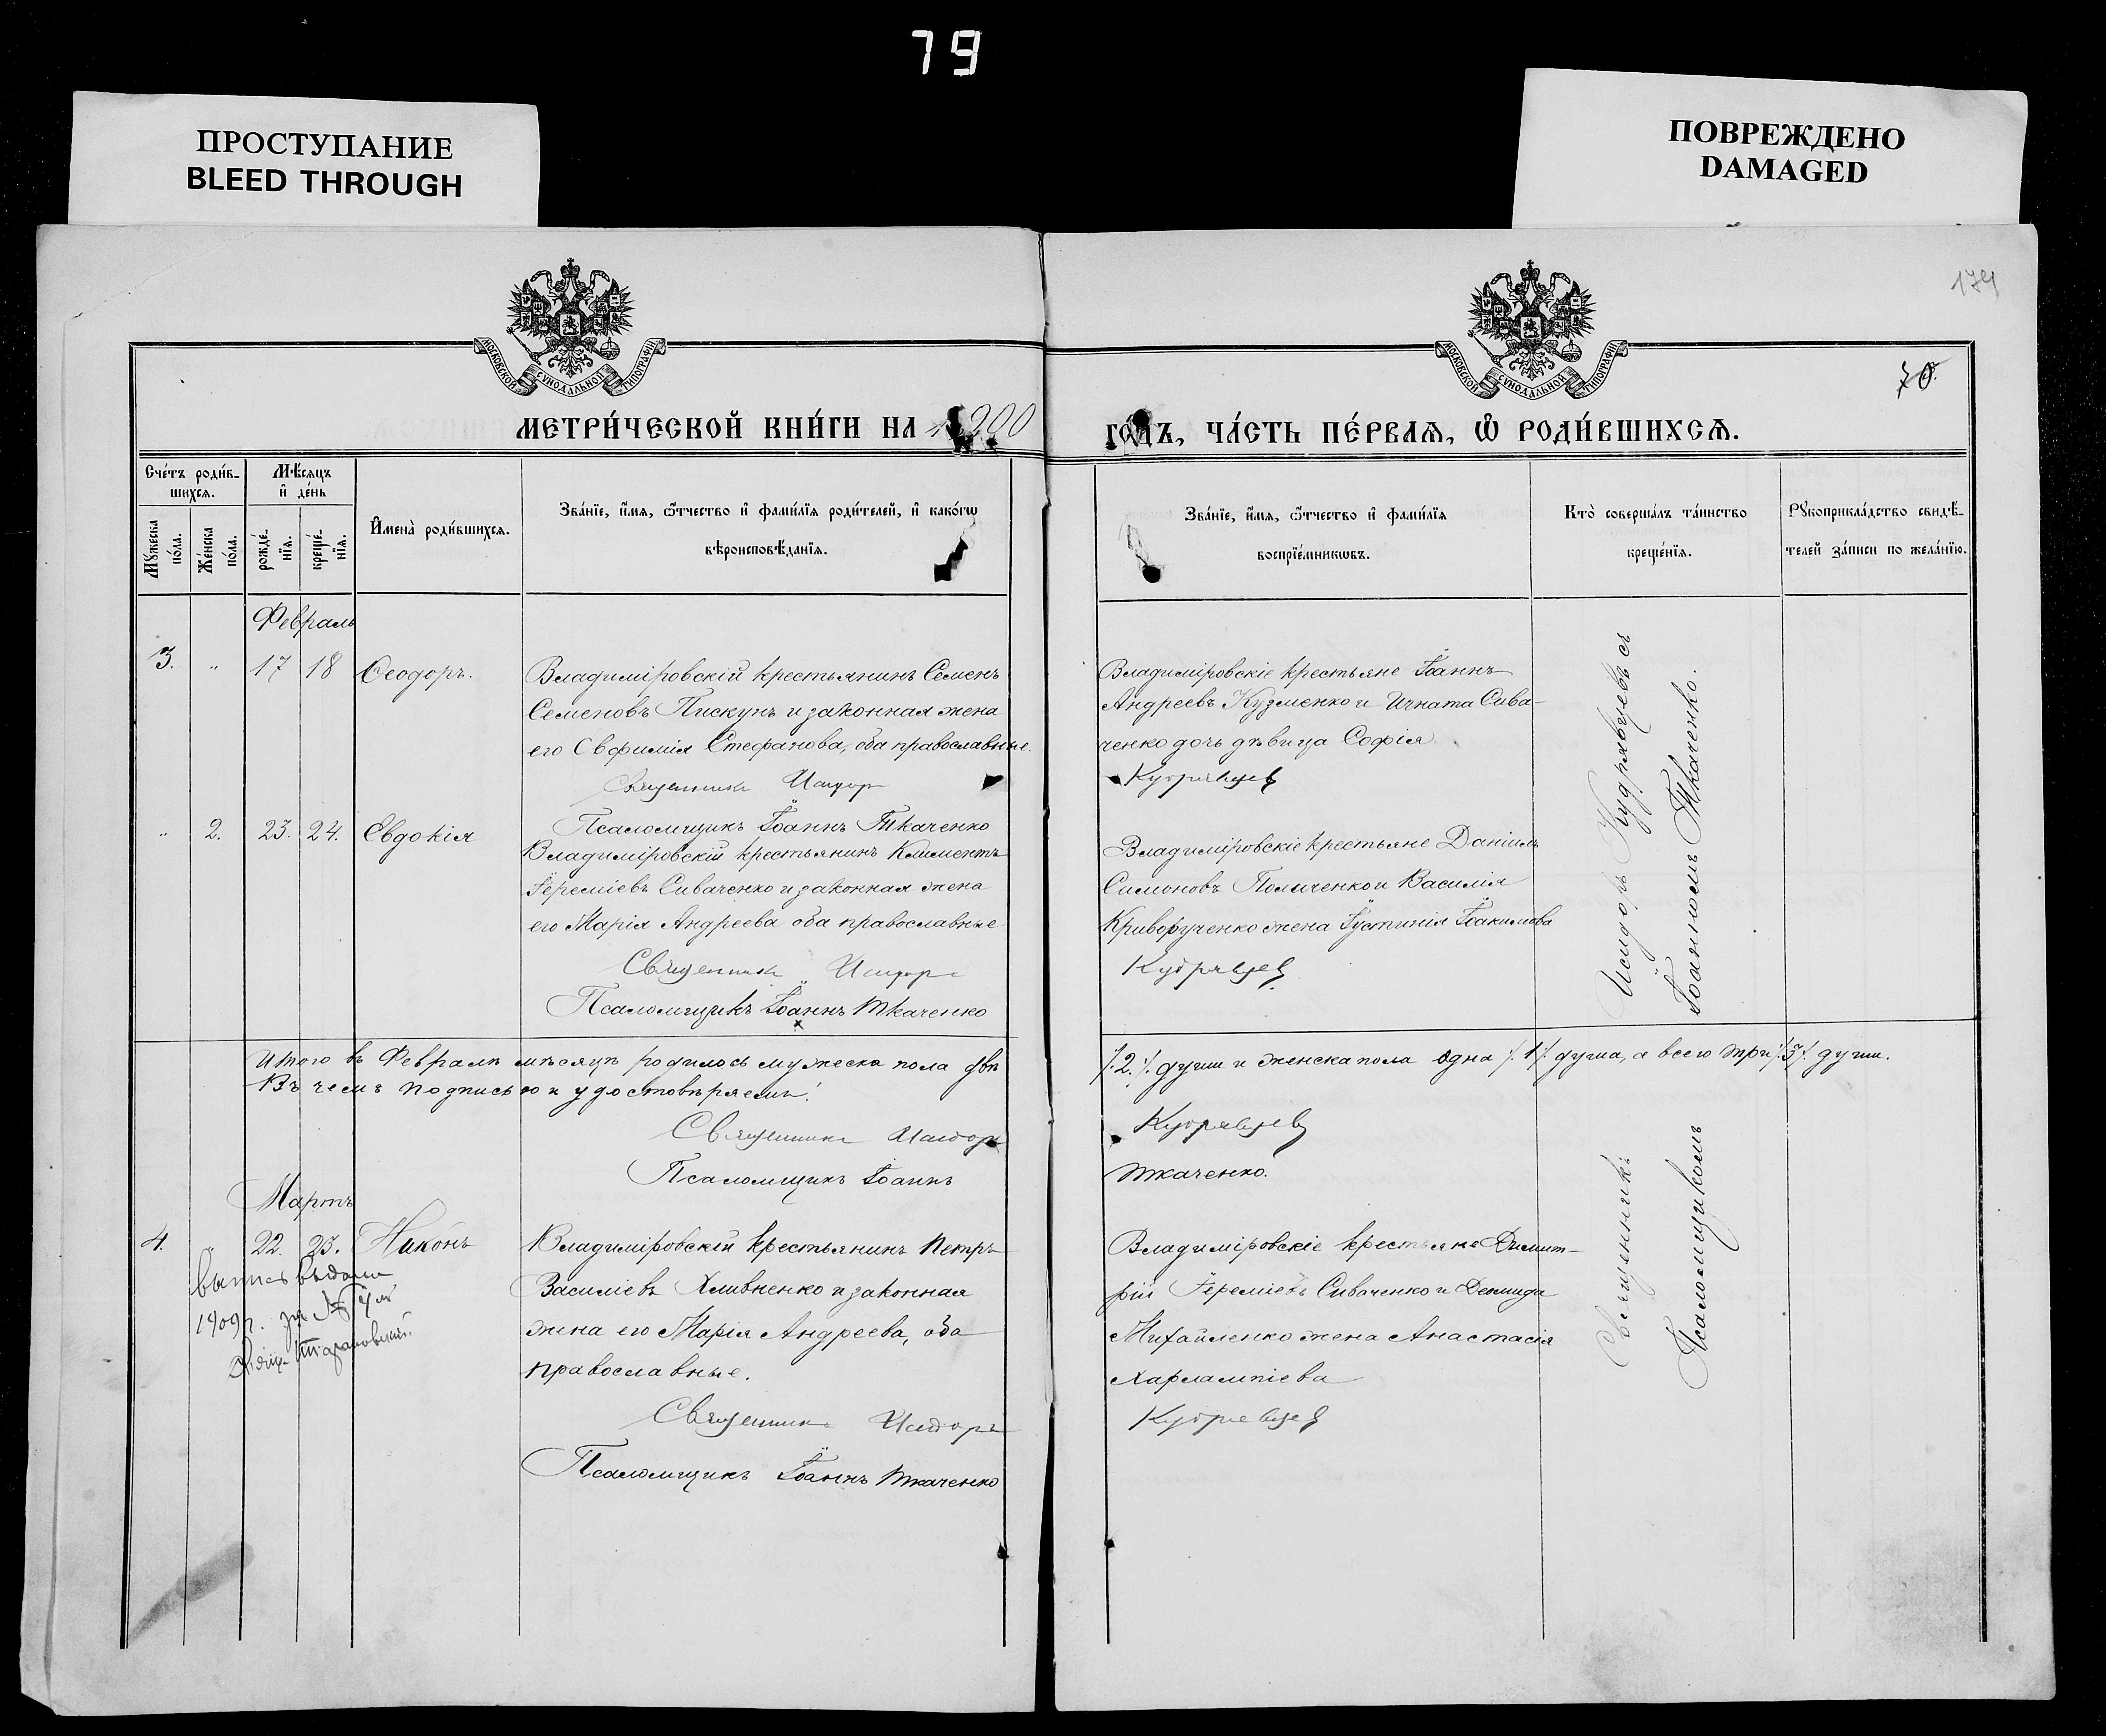 79
ПРОСТУПАНИЕ
BLEED THROUGH
ПОВРЕЖДЕНО
DAMAGED
174
70.
МОСКОВСКОЙ СѴНОДАЛЬНОЙ ТИПОГРАФІИ
МОСКОВСКОЙ СѴНОДАЛЬНОЙ ТИПОГРАФІИ
МЕТРИ́ЧЕСКОЙ КНИ́ГИ НА 1900
ГО́ДЪ, ЧА́СТЬ ПЕ́РВАЯ, Ѽ РОДИ́ВШИХСЯ.
Сче́тъ роди́в-
шихся.
Мѣ́сяцъ
и҆ де́нь
Мꙋ́жеска
по́ла.
Же́нска
по́ла.
рожде́-
нїя.
креще́-
нїя.
И҆мена̀ роди́вшихся.
Зва́нїе, и҆́мя, ѻ҆́тчество и҆ фами́лїя роди́телей, и҆ како́гѡ
вѣроисповѣ́данїя.
Зва́нїе, и҆́мя, ѻ҆́тчество и҆ фами́лїя
воспрїе́мникѡвъ.
Кто̀ соверша́лъ та́инство
креще́нїя.
Рꙋкоприкла́дство свидѣ́-
телей за́писи по жела́нїю.
Февраль
3. „ 17 18 Ѳеодоръ.
Владимiровскiй крестьянинъ Семенъ
Семеновъ Пискунъ и законная жена
его Евфимiя Стефанова, оба православные.
Священникъ Исидоръ
Псаломщикъ Iоаннъ Ткаченко
Владимiровскiе крестьяне Iоаннъ
Андреевъ Кузменко и Игната Сива-
ченко дочь дѣвица Софiя
Кудрявцев
„ 2. 23. 24. Евдокiя
Владимiровскiй крестьянинъ Климентъ
Iеремiевъ Сиваченко и законная жена
его Марiя Андреева оба православные
Священникъ Исидоръ
Псаломщикъ Iоаннъ Ткаченко
Владимiровскiе крестьяне Данiилъ
Симоновъ Поличенко и Василiя
Криворученко жена Iустинiя Iоакимова
Кудрявцев
Исидоръ Кудрявцевъ съ
Iоанномъ Ткаченко.
Итого въ Февралѣ мѣсяцѣ родилось мужеска пола двѣ
/.2./. души и женска пола одна /.1/. душа, а всего три /.3/. души.
Въ чемъ подписью и удостовѣряемъ:
Священникъ Исидоръ
Кудрявцев
Псаломщикъ Iоаннъ
Ткаченко.
Мартъ
4. „ 22. 23. Никонъ
Выпись выдана
1909 г. за №
Владимiровскiй крестьянинъ Петръ
Василiевъ Хливненко и законная
жена его Марiя Андреева, оба
православные.
Священникъ Исидоръ
Псаломщикъ Iоаннъ Ткаченко
Владимiровскiе крестьяне Димит-
рiй Iеремiевъ Сиваченко и Демида
Михайленко жена Анастасiя
Харлампiева
Кудрявцев
Священникъ
Псаломщикомъ